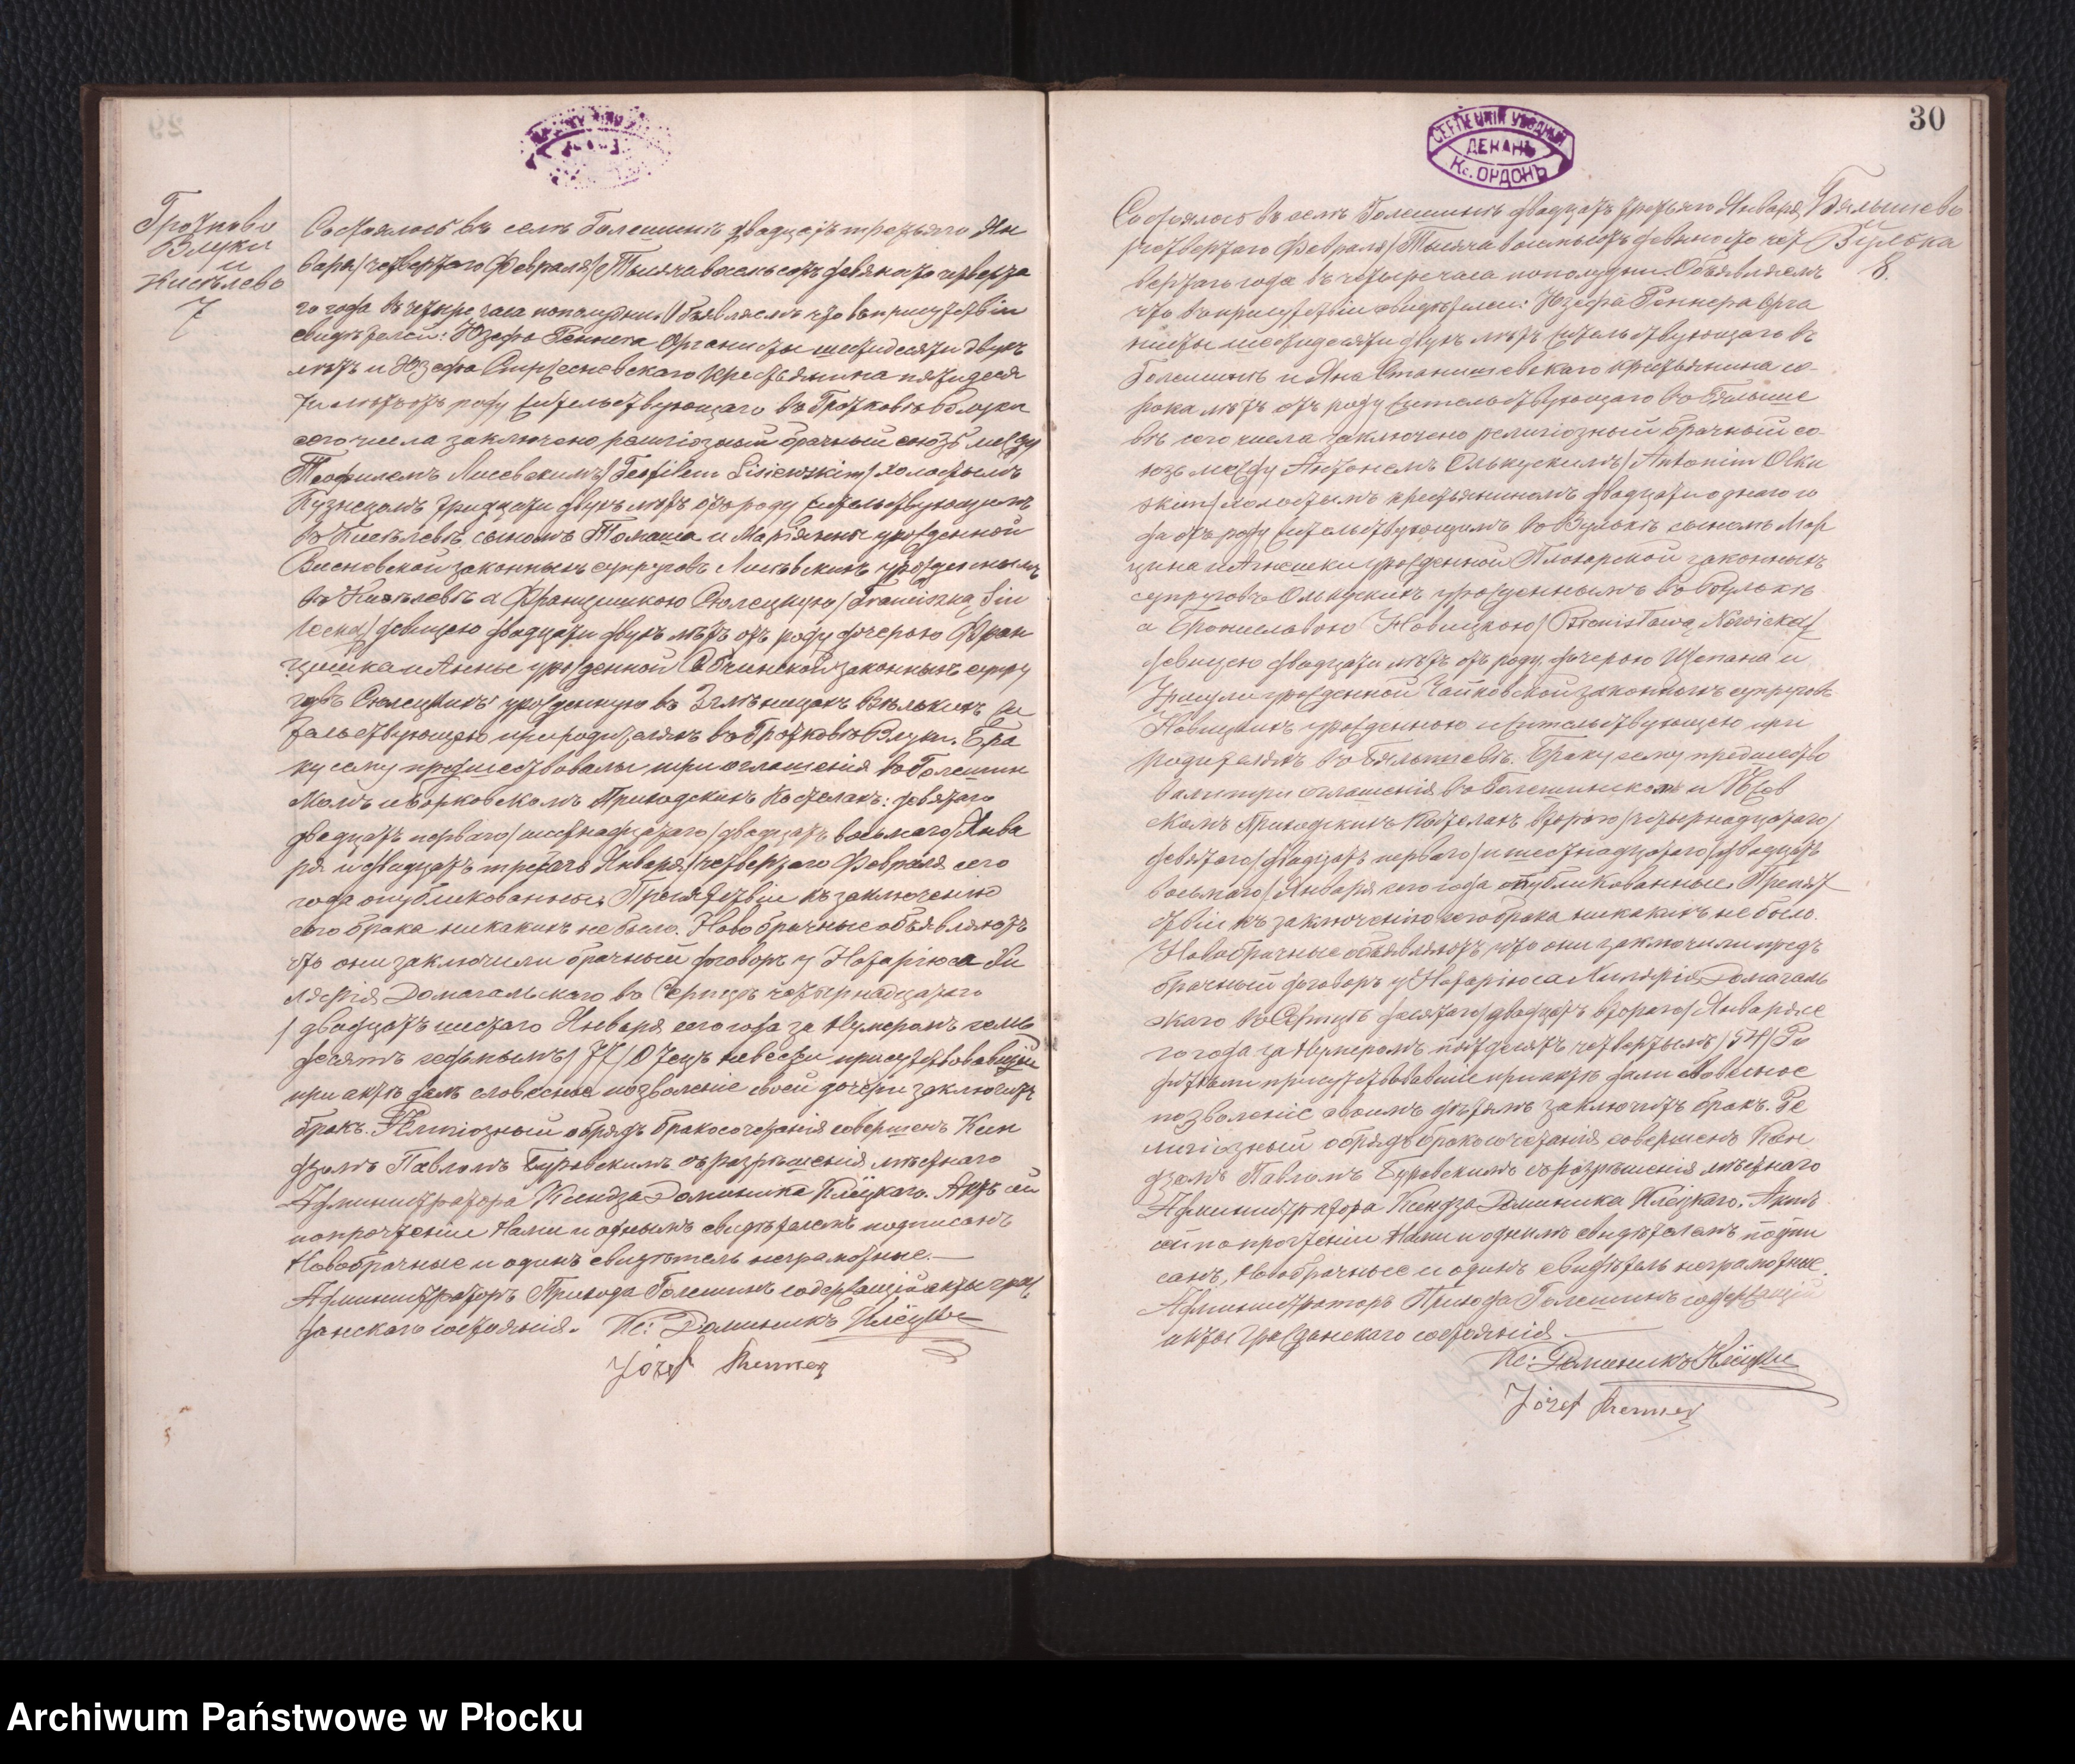 Гротково
Влуки
и
Киселево
7
Состоялось въ селѣ Голешинѣ двадцать третьяго Ян
варя /четвертаго Февраля/ Тысяча восемьсотъ девяносто четверта
го года въ четыре часа пополудни. Объявляемъ что въ присутствіи
свидѣтелей: Юзефа Реннера Органисты шестидесяти двухъ
лѣтъ и Юзефа крестьянина пятидеся
ти лѣтъ отъ роду жительствующаго въ
сего числа заключено религіозный брачный союзъ между
Теофилемъ Лисевскимъ /Teofilem Lisiewskim/ холостымъ
Кузнецомъ тридцати двухъ лѣтъ отъ роду жительствующимъ
въ Киселевѣ, сыномъ Томаша и Маріянны урожденной
Висновской законныхъ супруговъ Лисевскихъ урожденнымъ
въ Киселевѣ а Францишкою Сюлецкую /Franciszką Siu
lecką/ девицею двадцати двухъ лѣтъ отъ роду дочерью Фран
цишка и Анны урожденной законныхъ супру
говъ Сюлецкихъ урожденную въ жи
тельствующею при родителяхъ въ Гротковѣ Влуки. Бра
ку сему предшествовалы три оглашенія въ Голешин
скомъ и Борковскомъ Приходскихъ Костелахъ: девятаго
двадцать перваго/ шестнадцатаго /двадцать восьмаго/ Янва
ря и двадцать третяго Января /четвертаго Февраля сего
года опубликованные, Препятствіи къ заключенію
сего брака никакихъ не было. Новобрачные объявляютъ
что они заключили брачный договоръ у Нотаріюса Хи
лярія Домагальскаго въ Серпцѣ четырнадцатаго
/двадцать шестаго Января сего года за Нумеромъ семь
десятъ седьмымъ /77/ Отецъ невесты присутствовавшій
при актѣ далъ словесное позволеніе своей дочери заключить
бракъ. Религіозный обрядъ бракосочетанія совершенъ Ксен
дзомъ Павломъ Буровскимъ съ разрѣшенія мѣстнаго
Администратора Ксендза Доминика Клецкаго. Актъ сей
по прочтеніи Нами и однымъ свидѣтелемъ подписанъ
Новобрачные и одинъ свидѣтель неграмотные.
Администраторъ Прихода Голешинъ содержащій акты граж
данскаго состоянія. Кс: Доминикъ Клецки
Józef Renner
30
СЕРПЕЦКІЙ УѢЗДНЫЙ
ДЕКАНЪ
Кс. ОРДОНЪ
Бялышево
Вулька
8.
Состоялось въ селѣ Голешинѣ двадцать третьяго Января
/четвертаго Февраля/ Тысяча восемьсотъ девяносто чет
вертаго года въ четыре часа пополудни. Объявляемъ
что въ присутствіи свидѣтелей: Юзефа Реннера Орга
нисты шестидесяти двухъ лѣтъ жительствующаго въ
Голешинѣ и Яна Станишевскаго крестьянина со
рока лѣтъ отъ роду жительствующаго въ Бялыше
вѣ сего числа заключено религіозный брачный со
юзъ между Антонемъ Олькускимъ /Antonim Olku
skim/ холостымъ крестьяниномъ двадцати одного го
да отъ роду жительствующимъ въ Вулькѣ сыномъ Мар
цина и Агнешки урожденной Плонарской законныхъ
супруговъ Олькускихъ урожденнымъ въ Вулькѣ
а Брониславою Новицкою /Bronisławą Nowicką/
девицею двадцати лѣтъ отъ роду дочерью Щепана и
Уршули урожденной Чайковской законныхъ супруговъ
Новицкихъ урожденною и жительствующею при
родителяхъ въ Бялышевѣ. Браку сему предшество
вали три оглашенія въ Голешинскомъ и
скомъ Приходскихъ Костелахъ втораго /четырнадцатаго/
девятаго /двадцать перваго/ и шестнадцатаго /двадцать
восьмаго/ Января сего года опубликованные. Препят
ствіи къ заключенію сего брака никакихъ не было.
Новобрачные объявляютъ что они заключили предъ
брачный договоръ у Нотаріюса Хилярія Домагаль
скаго въ Серпцѣ десятаго /двадцать втораго/ Января се
го года за Нумеромъ пятдесятъ четвертымъ /54/ Ро
дители присутствовавшіе при актѣ дали словесное
позволеніе своимъ дѣтямъ заключить бракъ. Ре
лигіозный обрядъ бракосочетанія совершенъ Ксен
дзомъ Павломъ Буровскимъ съ разрѣшенія мѣстнаго
Администратора Ксендза Доминика Клецкаго. Актъ
сей по прочтеніи Нами и однимъ свидѣтелемъ подпи
санъ, Новобрачные и одинъ свидѣтель неграмотные.
Администраторъ Прихода Голешинъ содержащій
акты гражданскаго состоянія.
Кс: Доминикъ Клецки
Józef Renner
Archiwum Państwowe w Płocku